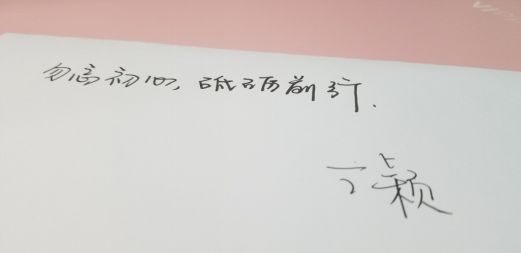 勿忘初心, 砥砺前行.
颖